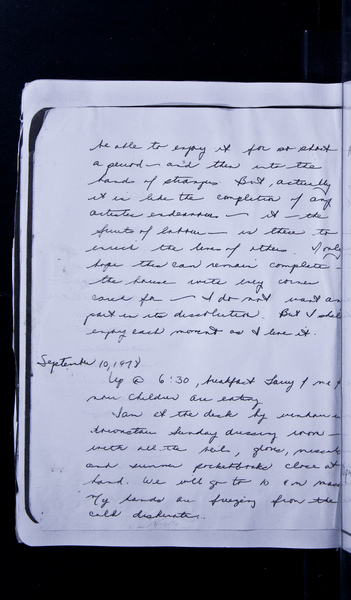 be able to enjoy it for so short
a period - and then into the
hands of strangers But, actually
it is like the completion of any
artistic endeavour - it - the
fruits of labour - is there to
enrich the lives of others I only
hope this can remain complete -
the house with every corner
cared for - I do not want any
part in its dissolution. But I shall
enjoy each moment as I live it.
September 10, 1978
Up @ 6:30, breakfast Larry & me &
now children are eating
I am at the desk by window in
downstairs Sunday dressing room -
with all the hats, gloves, missals
and summer pocketbooks close at
hand. We will go to 10 am mass
My hands are freezing from the
cold